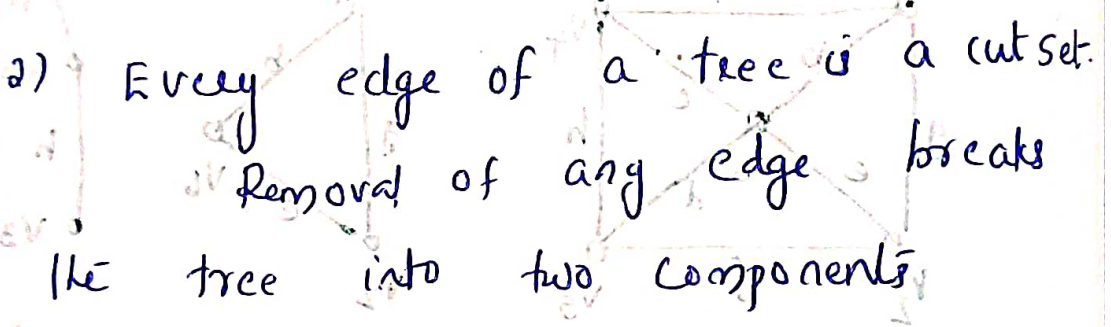 2) Every edge of a tree is a cut set.
Removal of any edge breaks
the tree into two components